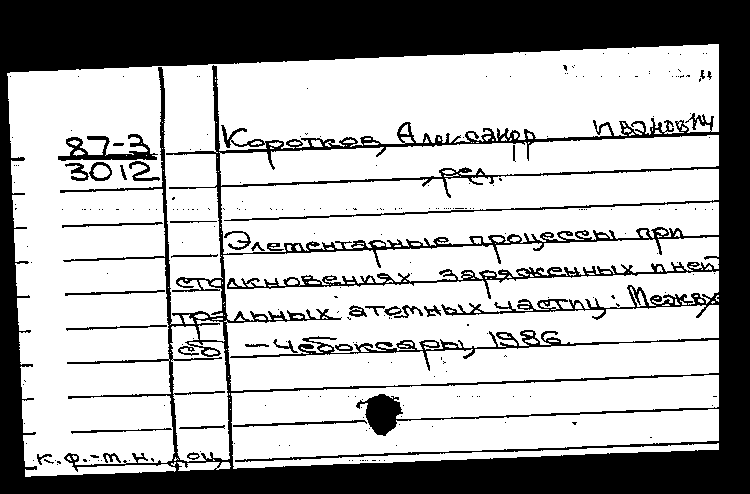 87-3
3012
Коротков, Александр Иванович
, ред.
Элементарные процессы при
столкновениях заряженных и ней
тральных атомных частиц: Межвуз
сб – Чебоксары, 1986.
к.ф.-м.н., доц